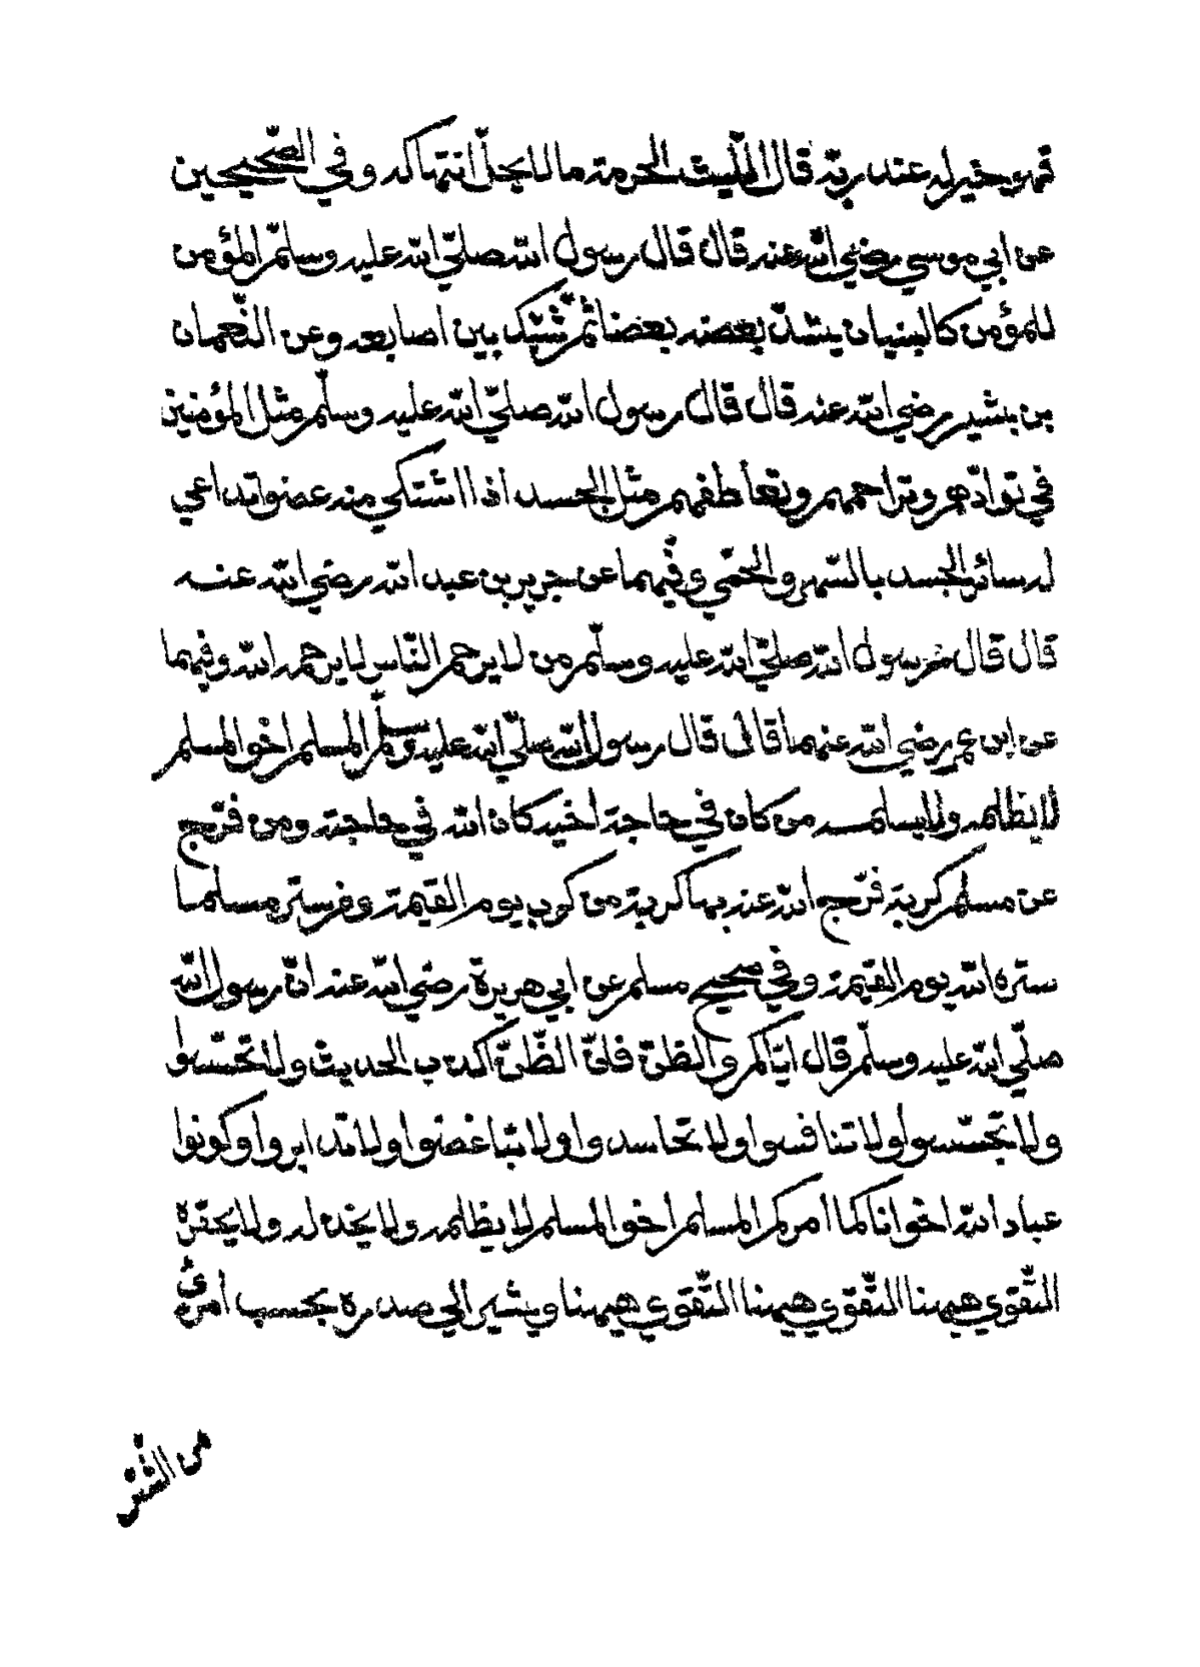 فهو خير له عند ربه قال الليث الحرمة ما لا يحلّ انتهاكه وفي الصّحيحين
عن ابي موسي رضي الله عنه قال قال رسول الله صلّي الله عليه وسلّم المؤمن
للمؤمن كالبنيان يشدّ بعضه بعضا ثمّ شبّك بين اصابعه وعن النّعمان
بن بشير رضي الله عنه قال قال رسول الله صلّي الله عليه وسلّم مثل المؤمنين
في توادّهم وتراحمهم وتعاطفهم مثل الجسد اذا اشتكي منه عضو تداعي
له سائر الجسد بالسّهر والحمّي وفيهما عن جرير بن عبد الله رضي الله عنه
قال قال رسول الله صلّي الله عليه وسلّم من لا يرحم النّاس لا يرحمه الله وفيهما
عن ابن عمر رضي الله عنهما قال قال رسول الله صلّي الله عليه وسلّم المسلم اخو المسلم
لا يظلمه ولا يسلمه من كان في حاجة اخيه كان الله في حاجته ومن فرّج
عن مسلم كربة فرّج الله عنه بها كربة من كرب يوم القيمة ومن ستر مسلما
ستره الله يوم القيمة وفي صحيح مسلم عن ابي هريرة رضي الله عنه انّ رسول الله
صلّي الله عليه وسلّم قال ايّاكم والظنّ فانّ الظّنّ اكذب الحديث ولا تحسّسوا
ولا تجسّسوا ولا تنافسوا ولا تحاسدوا ولا تباغضوا ولا تدابروا وكونوا
عباد الله اخوانا كما أمركم المسلم اخو المسلم لا يظلمه ولا يخذله ولا يحقره
التّقوي ههنا التّقوي ههنا التّقوي ههنا ويشير الي صدره بحسب أمرئ
من الشّرّ